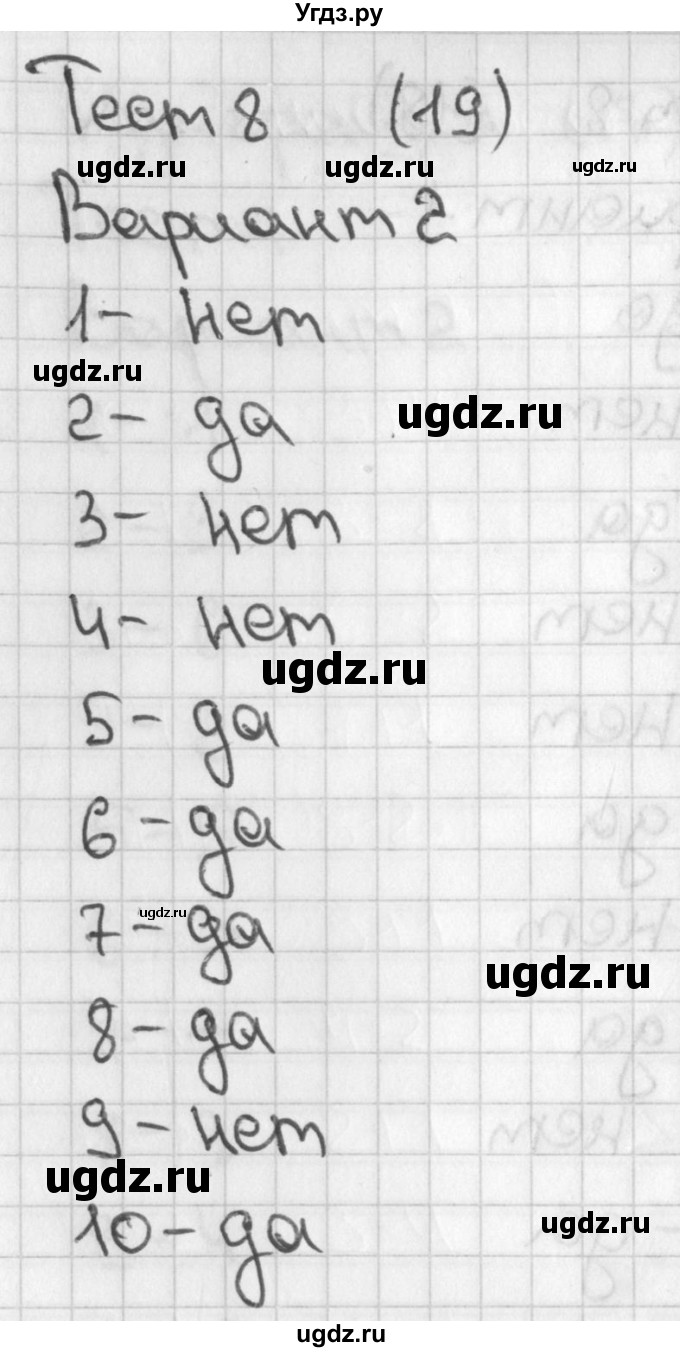 Угдз.ру
Тест 8 (19)
ugdz.ru ugdz.ru ugdz.ru
Вариант 2
1- нет
ugdz.ru
2- да ugdz.ru
3- нет
4- нет
ugdz.ru
5- да
6- да
7- ugdz.ru да
ugdz.ru
8- да
9- нет
ugdz.ru
10- да ugdz.ru
ugdz.ru